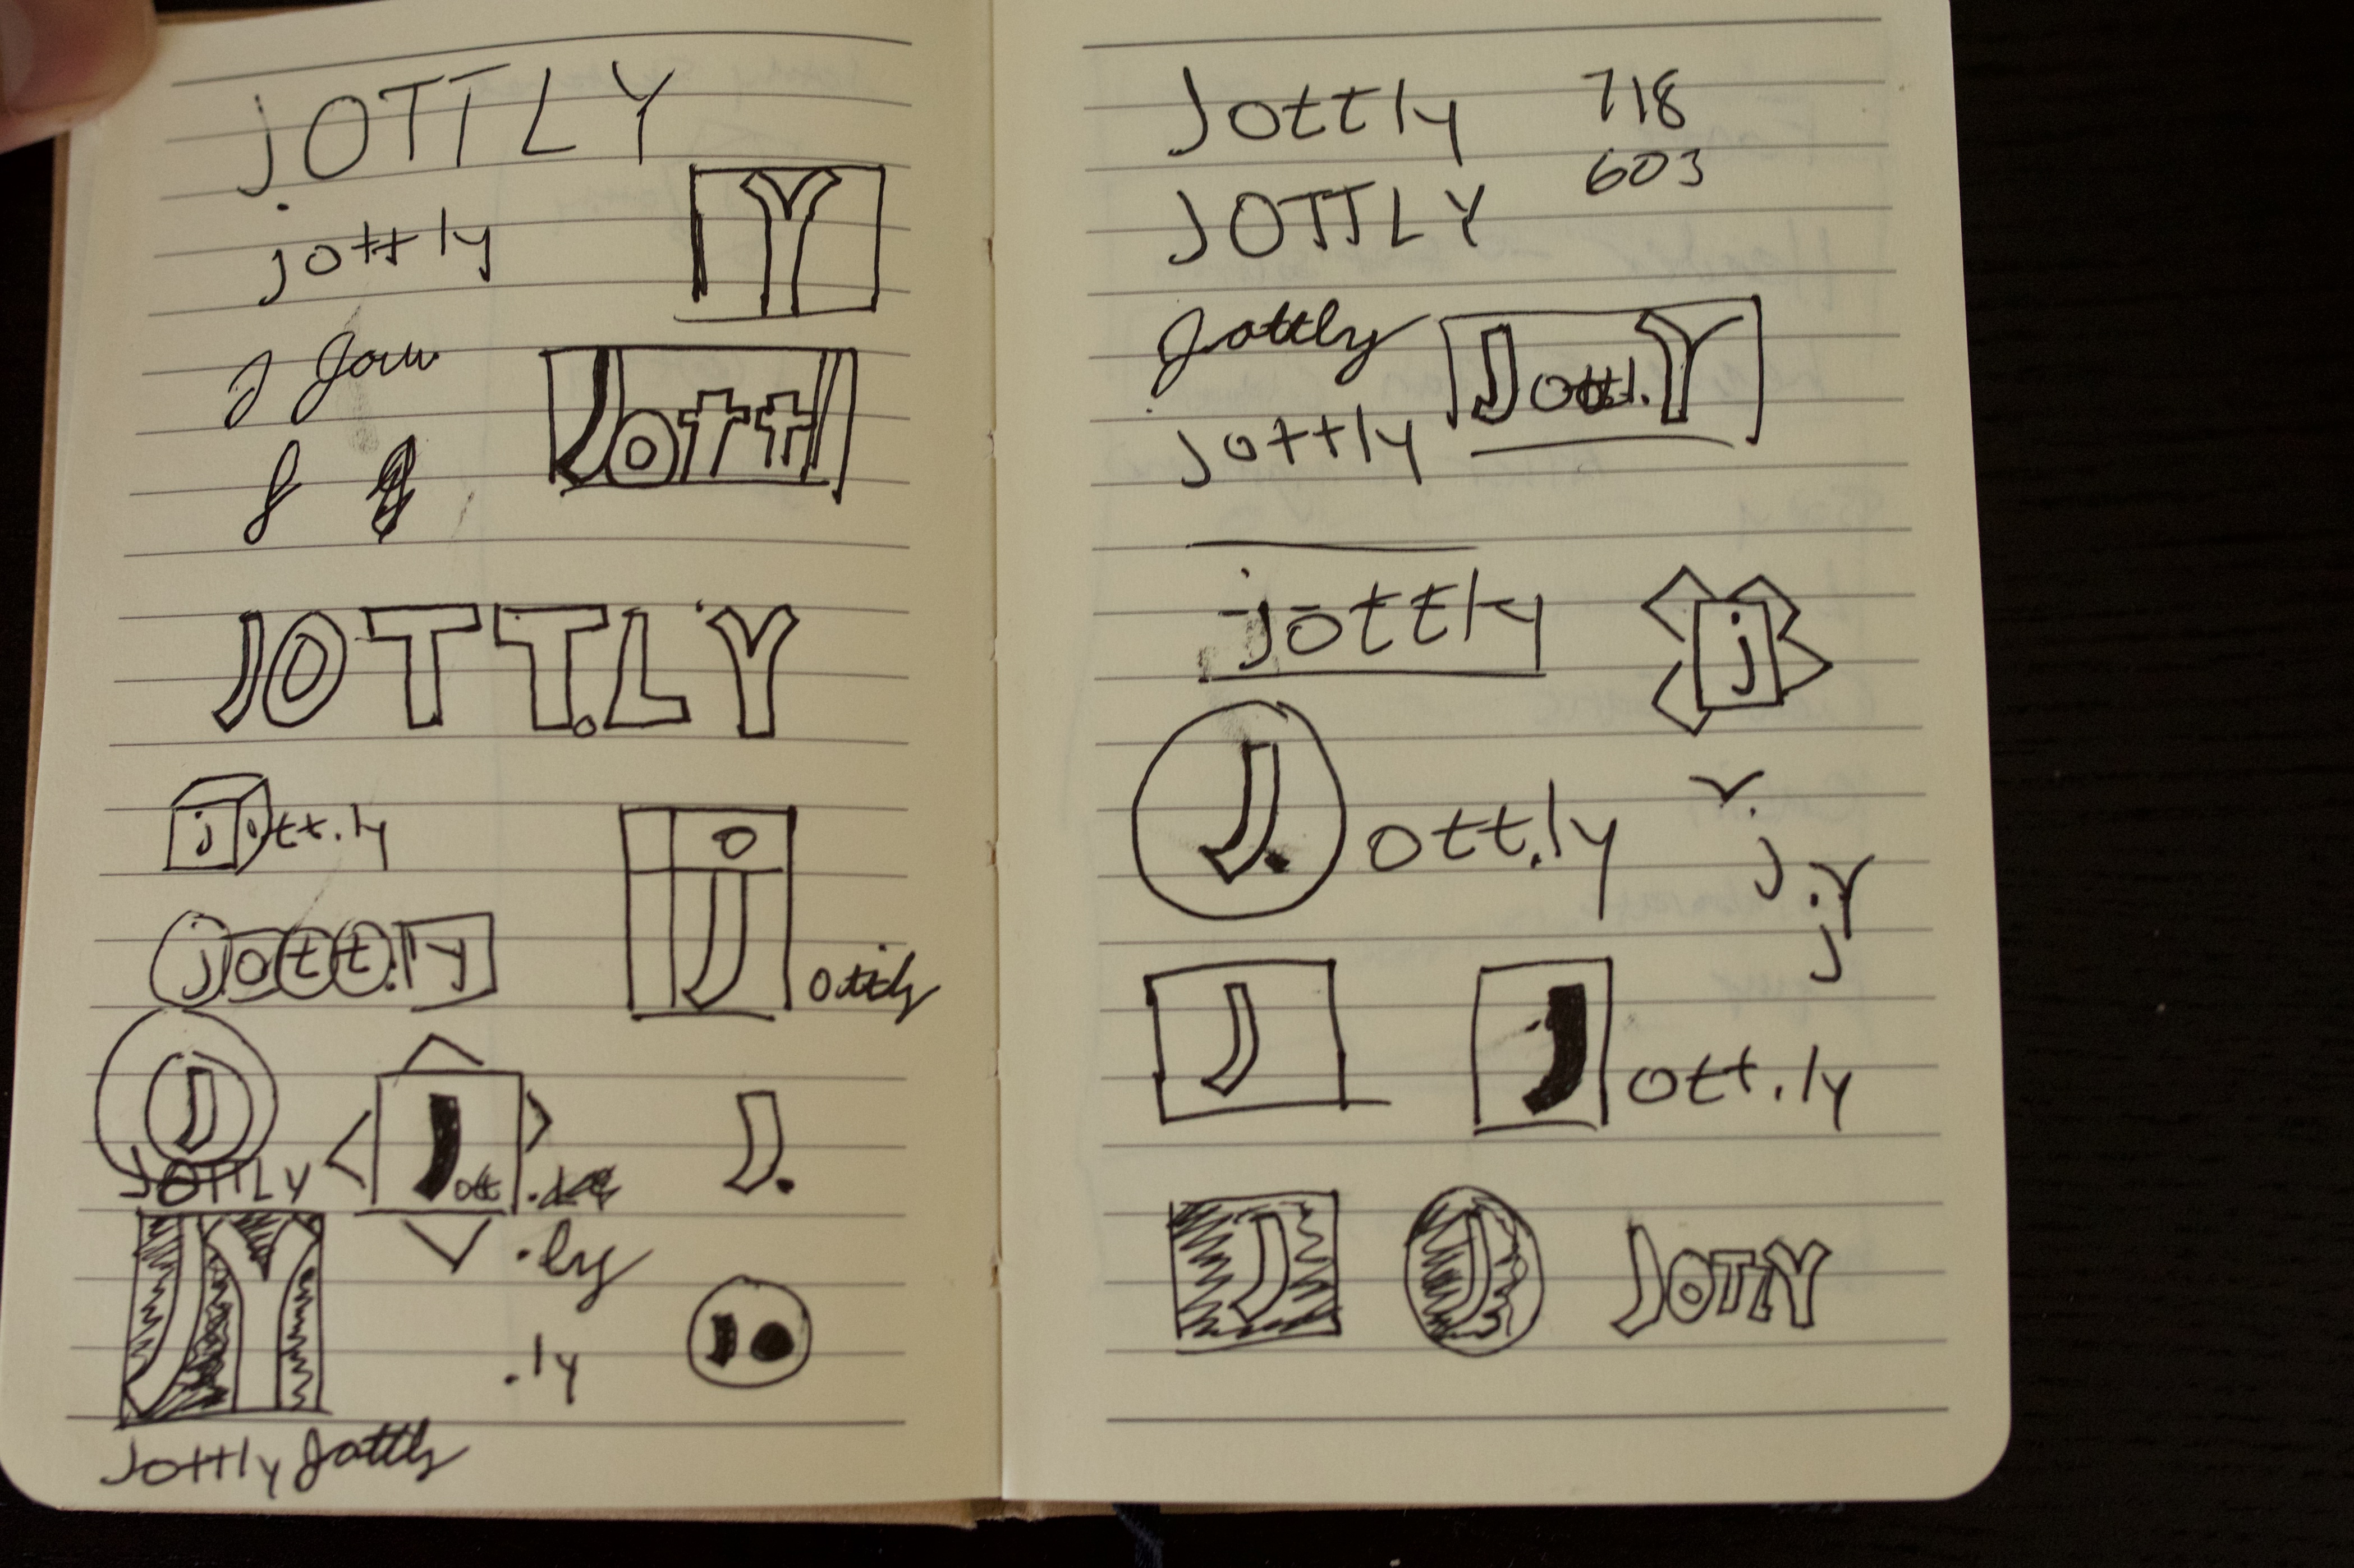 JOTTLY
Y
jottly
J
Jott
J
JOTT.LY
jott.ly
J
jott.ly
ottly
J
JOTTLY
J
ott
J.
.ly
JY
.ly
J.
Jottly Jottly
Jottly 718
603
JOTTLY
Jottly
Jottl.Y
jottly
jottly
j
J.
ott.ly
Y.
J
.Y
J
J
J
ott.ly
J
J
JOTTLY